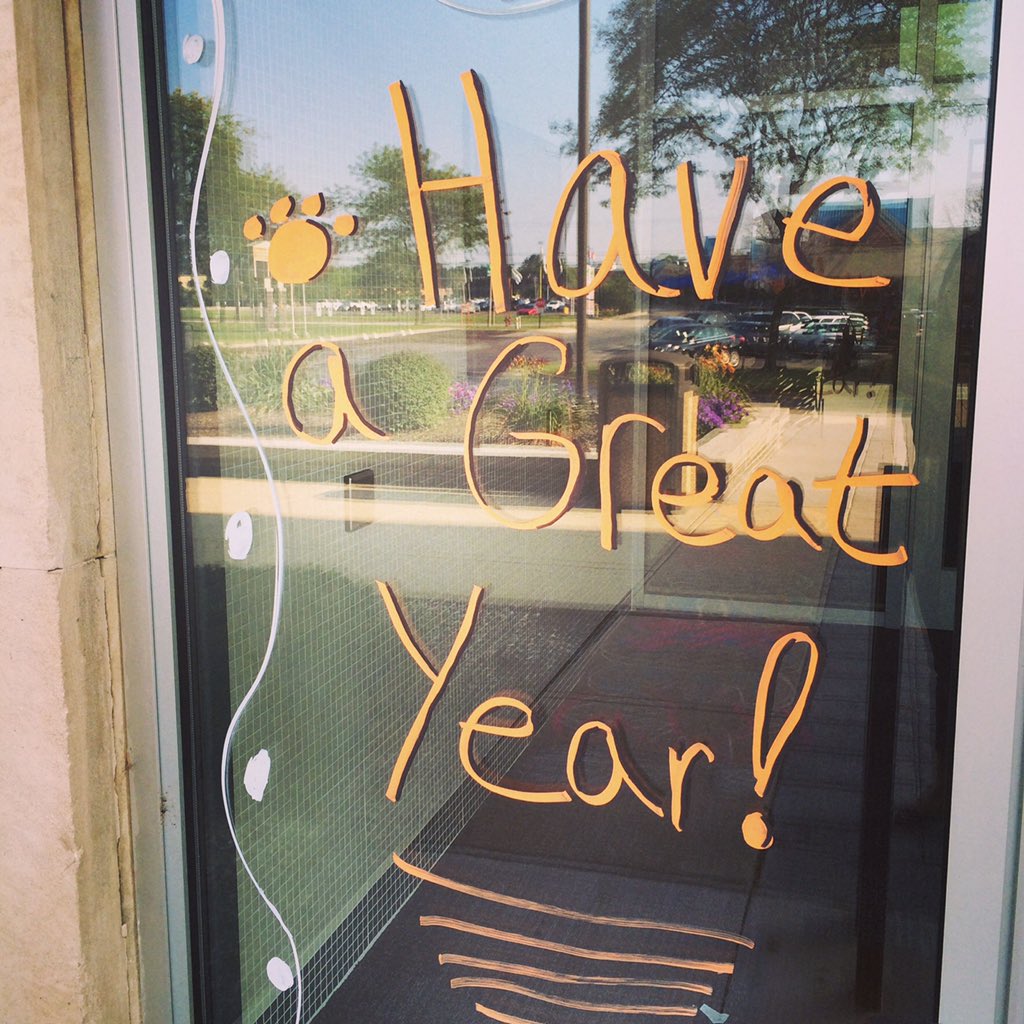 Have
a Great
Year!